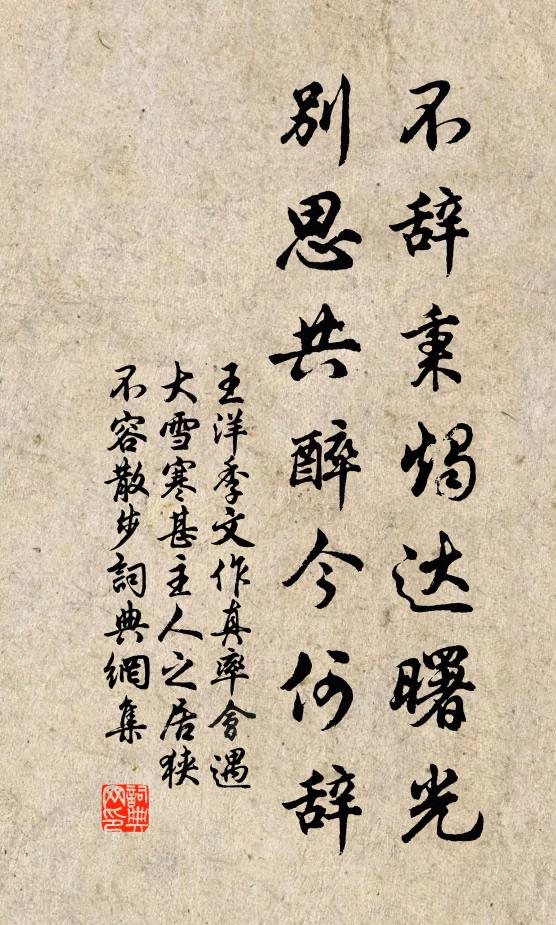 不辞秉烛达曙光
别思共醉今何辞
王洋季文作真率会遇
大雪寒甚主人之居狭
不容散步詞典網集
詞典
网印